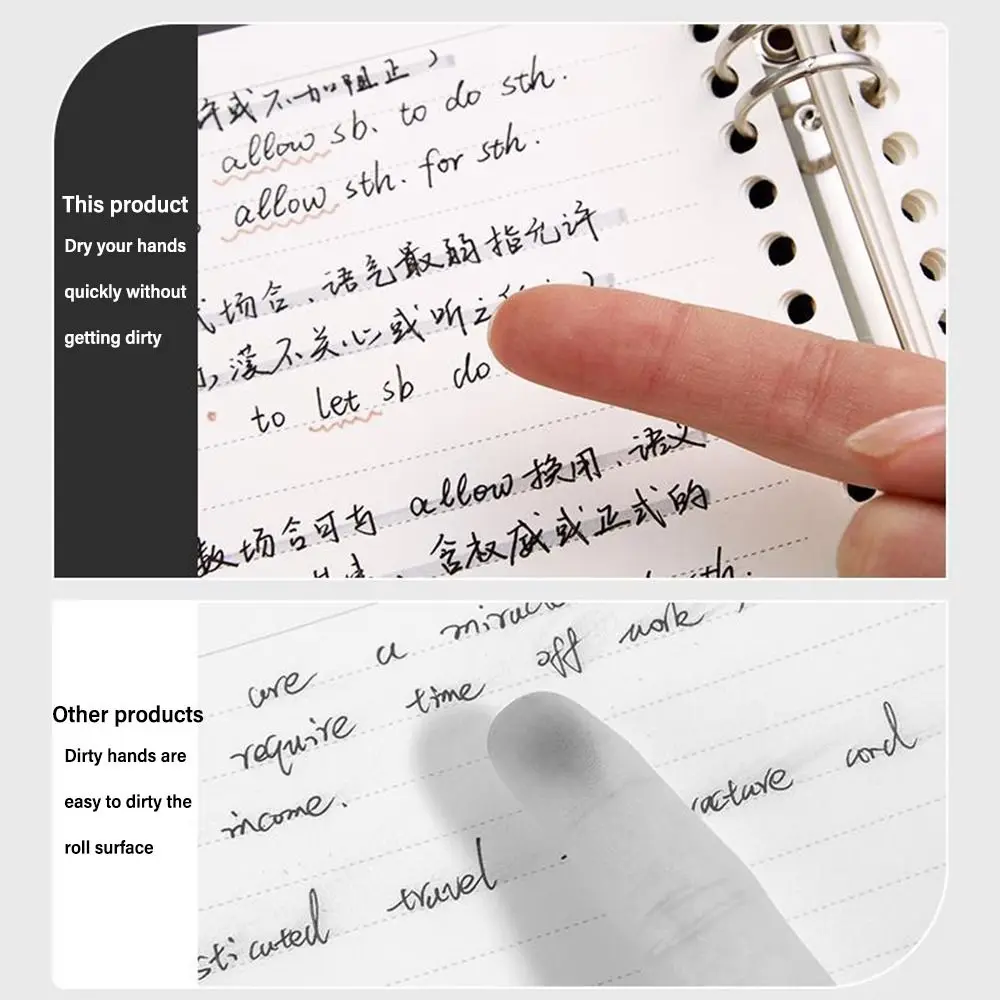 This product
Dry your hands
quickly without
getting dirty
许或不加阻正）
allow sb. to do sth.
allow sth. for sth.
式场合、语气最弱指允许
漠不关心或听之
to let sb do
数场合可与 allow 换用、语义
含权威或正式的
sth.
Other products
Dirty hands are
easy to dirty the
roll surface
are a
off work
require time
income.
cord
travel